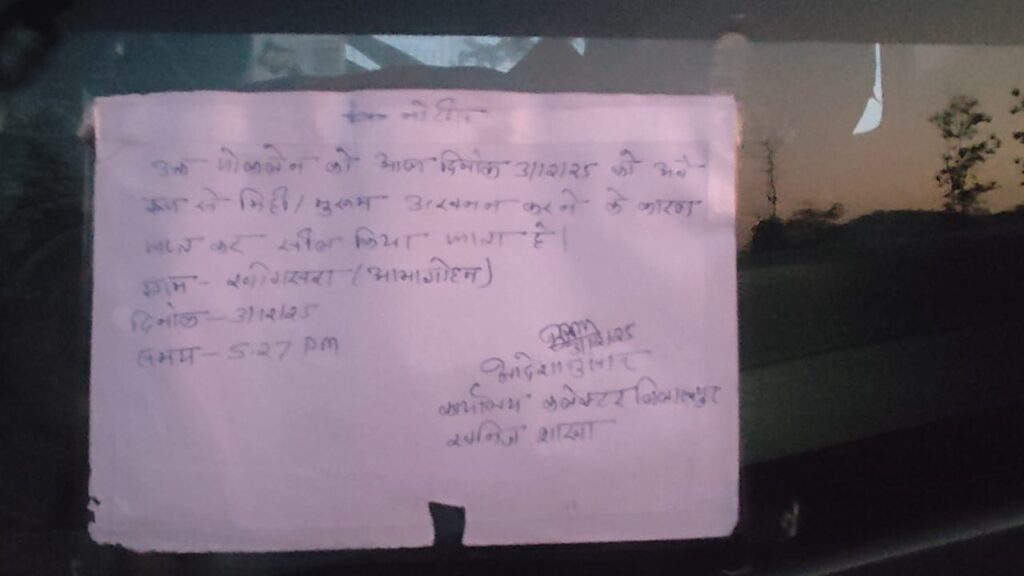 नोटिस
उक्त पोकलेन को आज दिनांक 3/12/25 को अवै-
रूप से मिट्टी/मुरूम उत्खनन करने के कारण
जप्त कर सील किया जाता है।
ग्राम - (आमागोहन)
दिनांक - 3/12/25
समय - 5:27 PM
3/12/25
आदेशानुसार
कार्यालय कलेक्टर बिलासपुर
खनिज शाखा